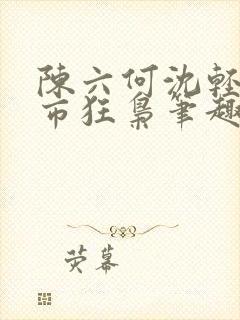 陳六何沈輕
市狂梟筆趣
荧幕